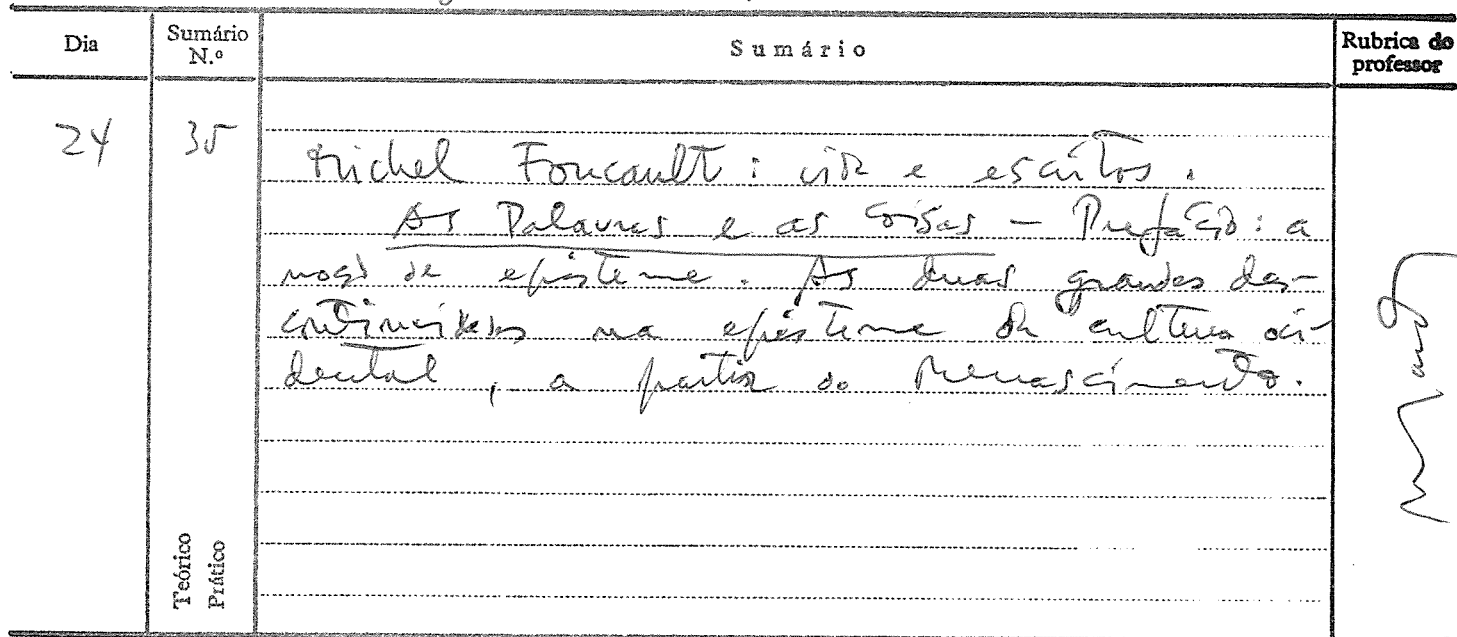 Dia
Sumário N.º
Sumário
Rubrica do professor
24
35
Michel Foucault: vida e escritos.
As Palavras e as Coisas — Prefácio: a
noção de episteme. As duas grandes des-
continuidades na episteme da cultura oci-
dental, a partir do Renascimento.
Teórico
Prático